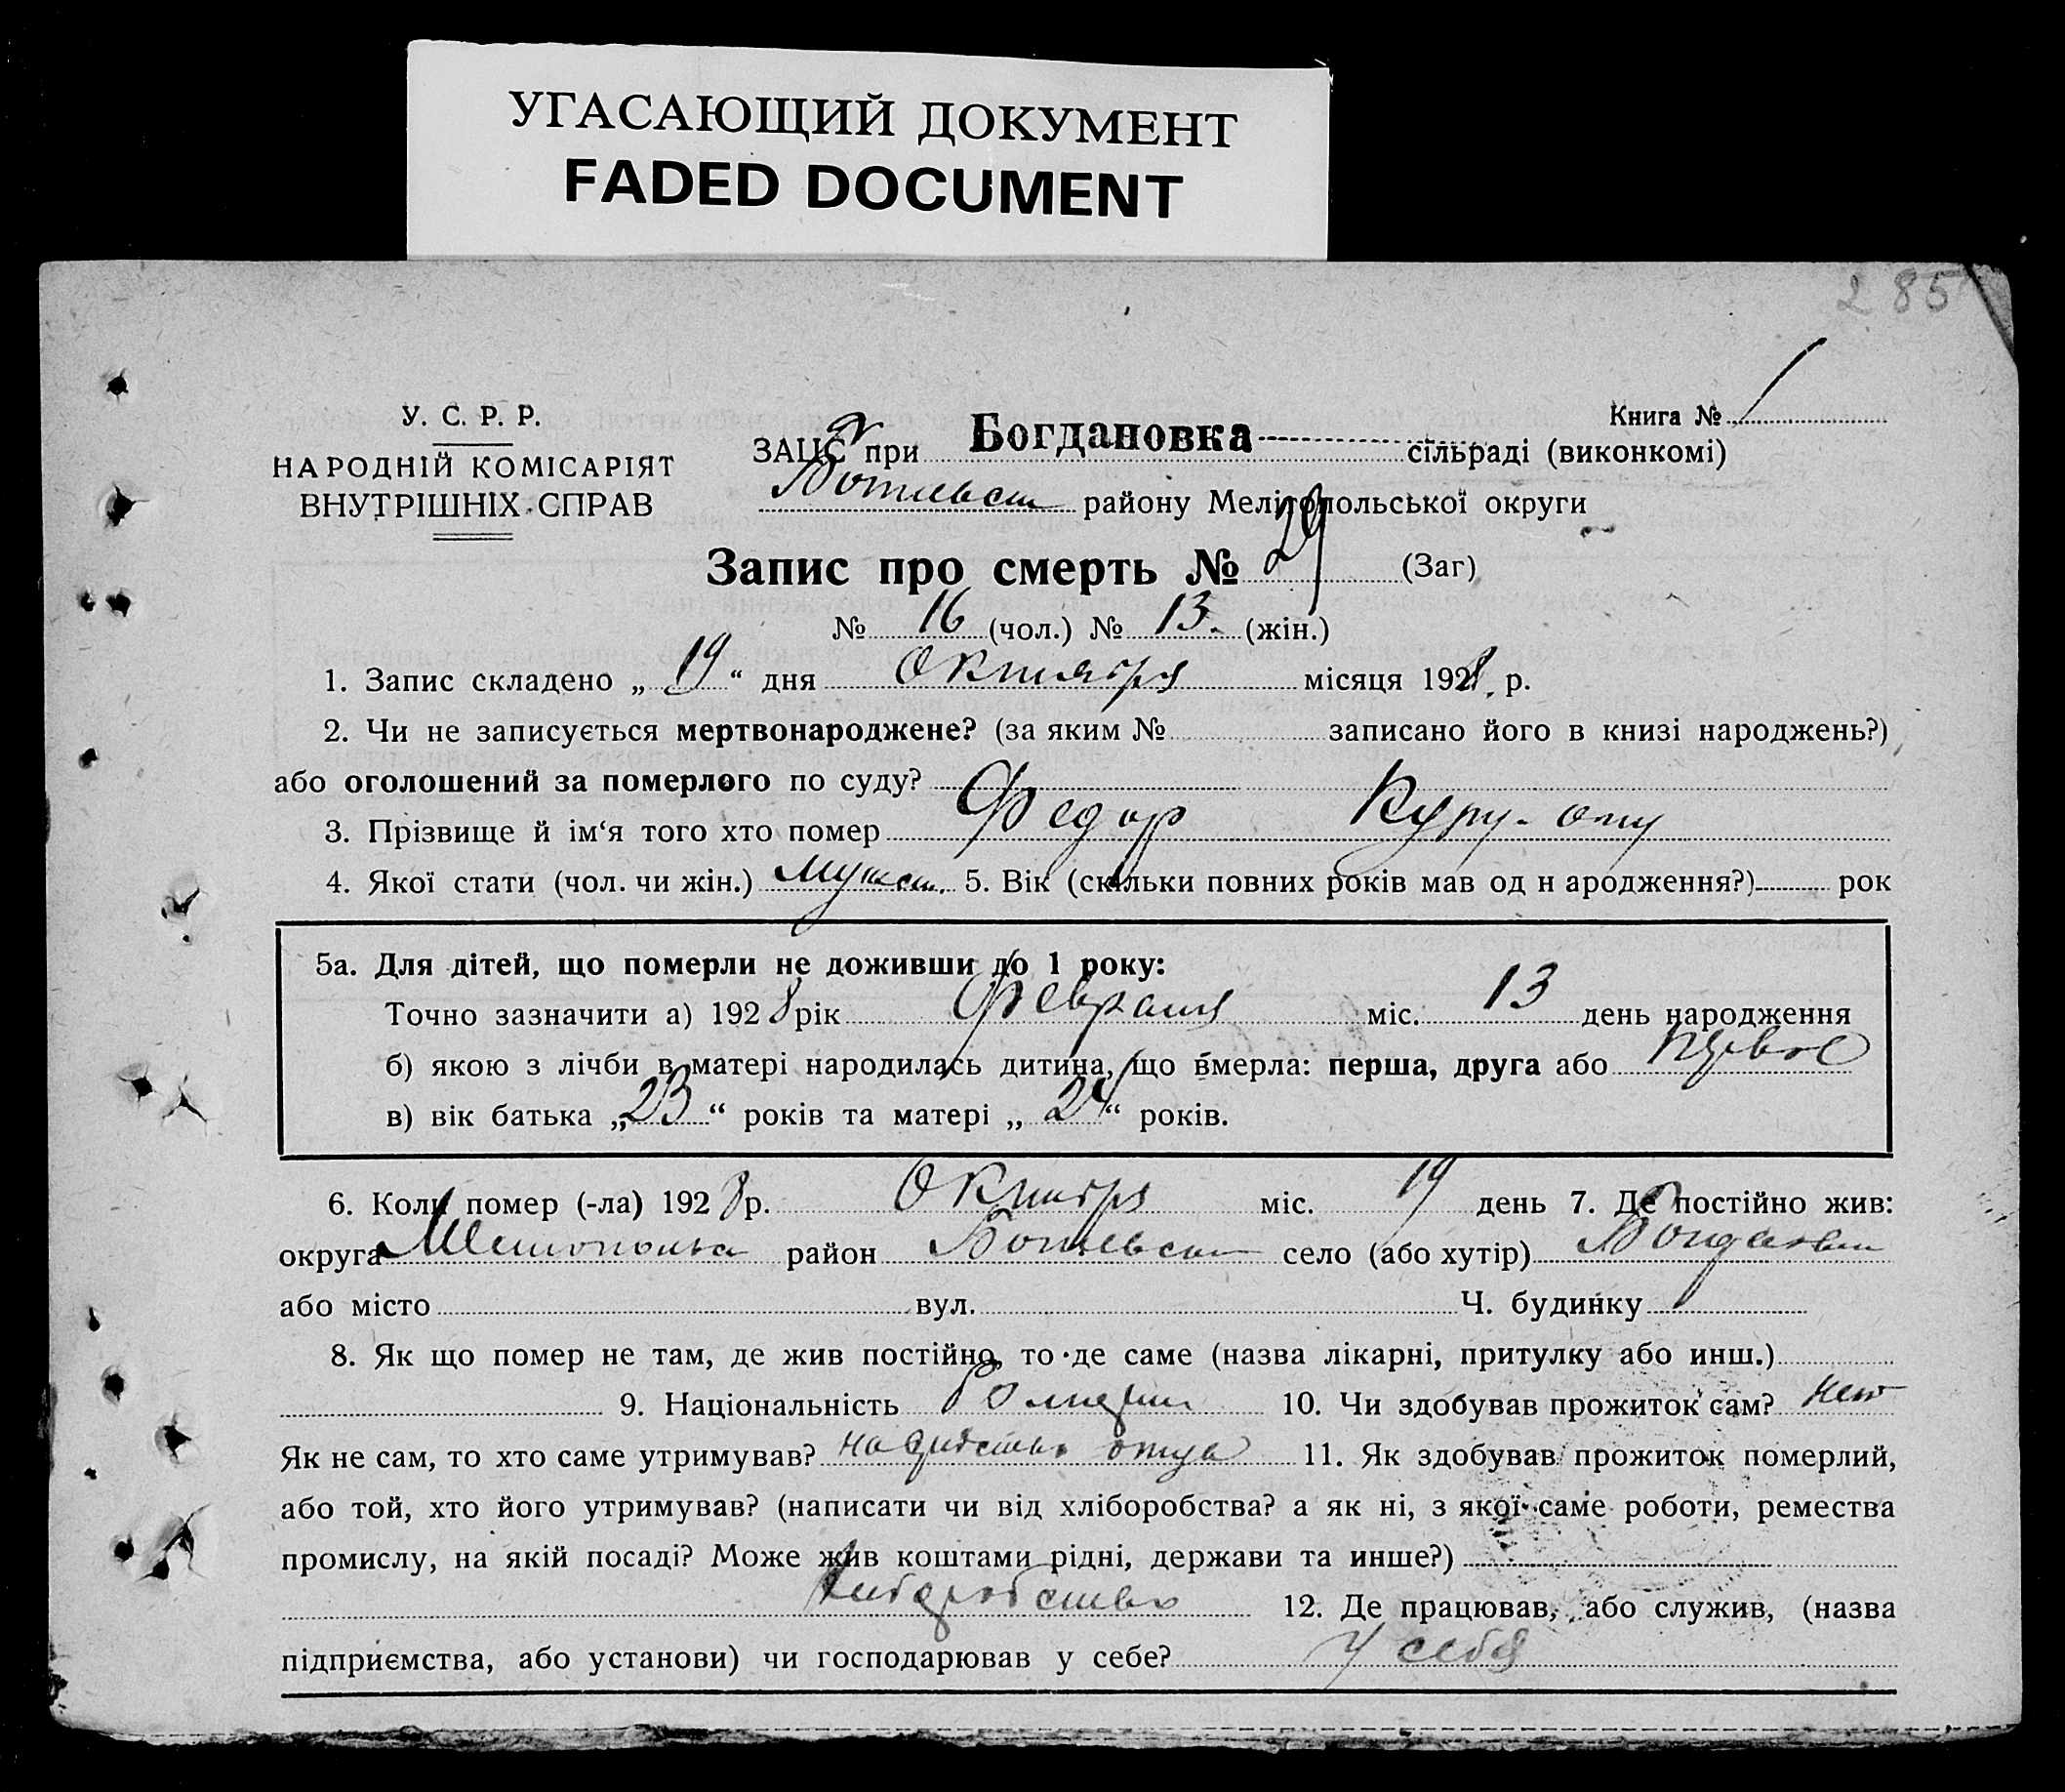 УГАСАЮЩИЙ ДОКУМЕНТ
FADED DOCUMENT
285
У. С. Р. Р.
НАРОДНІЙ КОМІСАРІЯТ
ВНУТРІШНІХ СПРАВ
Книга № 1
ЗАЦС при Богдановка сільраді (виконкомі)
району Мелітопольської округи
Запис про смерть № 29 (Заг)
№ 16 (чол.) № 13. (жін.)
1. Запис складено „ 19 “ дня Октября місяця 1928. р.
2. Чи не записується мертвонароджене? (за яким № записано його в книзі народжень?)
або оголошений за померлого по суду?
3. Прізвище й ім‘я того хто помер Федор Куру-оту
4. Якої стати (чол. чи жін.) Мужск. 5. Вік (скільки повних років мав од н ародження?) рок
5а. Для дітей, що померли не доживши до 1 року:
Точно зазначити а) 1928 рік Февраля міс. 13 день народження
б) якою з лічби в матері народилась дитина, що вмерла: перша, друга або первое
в) вік батька „ 23 “ років та матері „ 24 “ років.
6. Коли помер (-ла) 1928 р. Октября міс. 19 день 7. Де постійно жив:
округа район Ботиевск село (або хутір) Богдановка
або місто вул. Ч. будинку
8. Як що помер не там, де жив постійно, то де саме (назва лікарні, притулку або инш.)
9. Національність 10. Чи здобував прожиток сам? нет
Як не сам, то хто саме утримував? на средства отца 11. Як здобував прожиток померлий,
або той, хто його утримував? (написати чи від хліборобства? а як ні, з якої саме роботи, ремества
промислу, на якій посаді? Може жив коштами рідні, держави та инше?)
хліборобство 12. Де працював, або служив, (назва
підприємства, або установи) чи господарював у себе? У себя